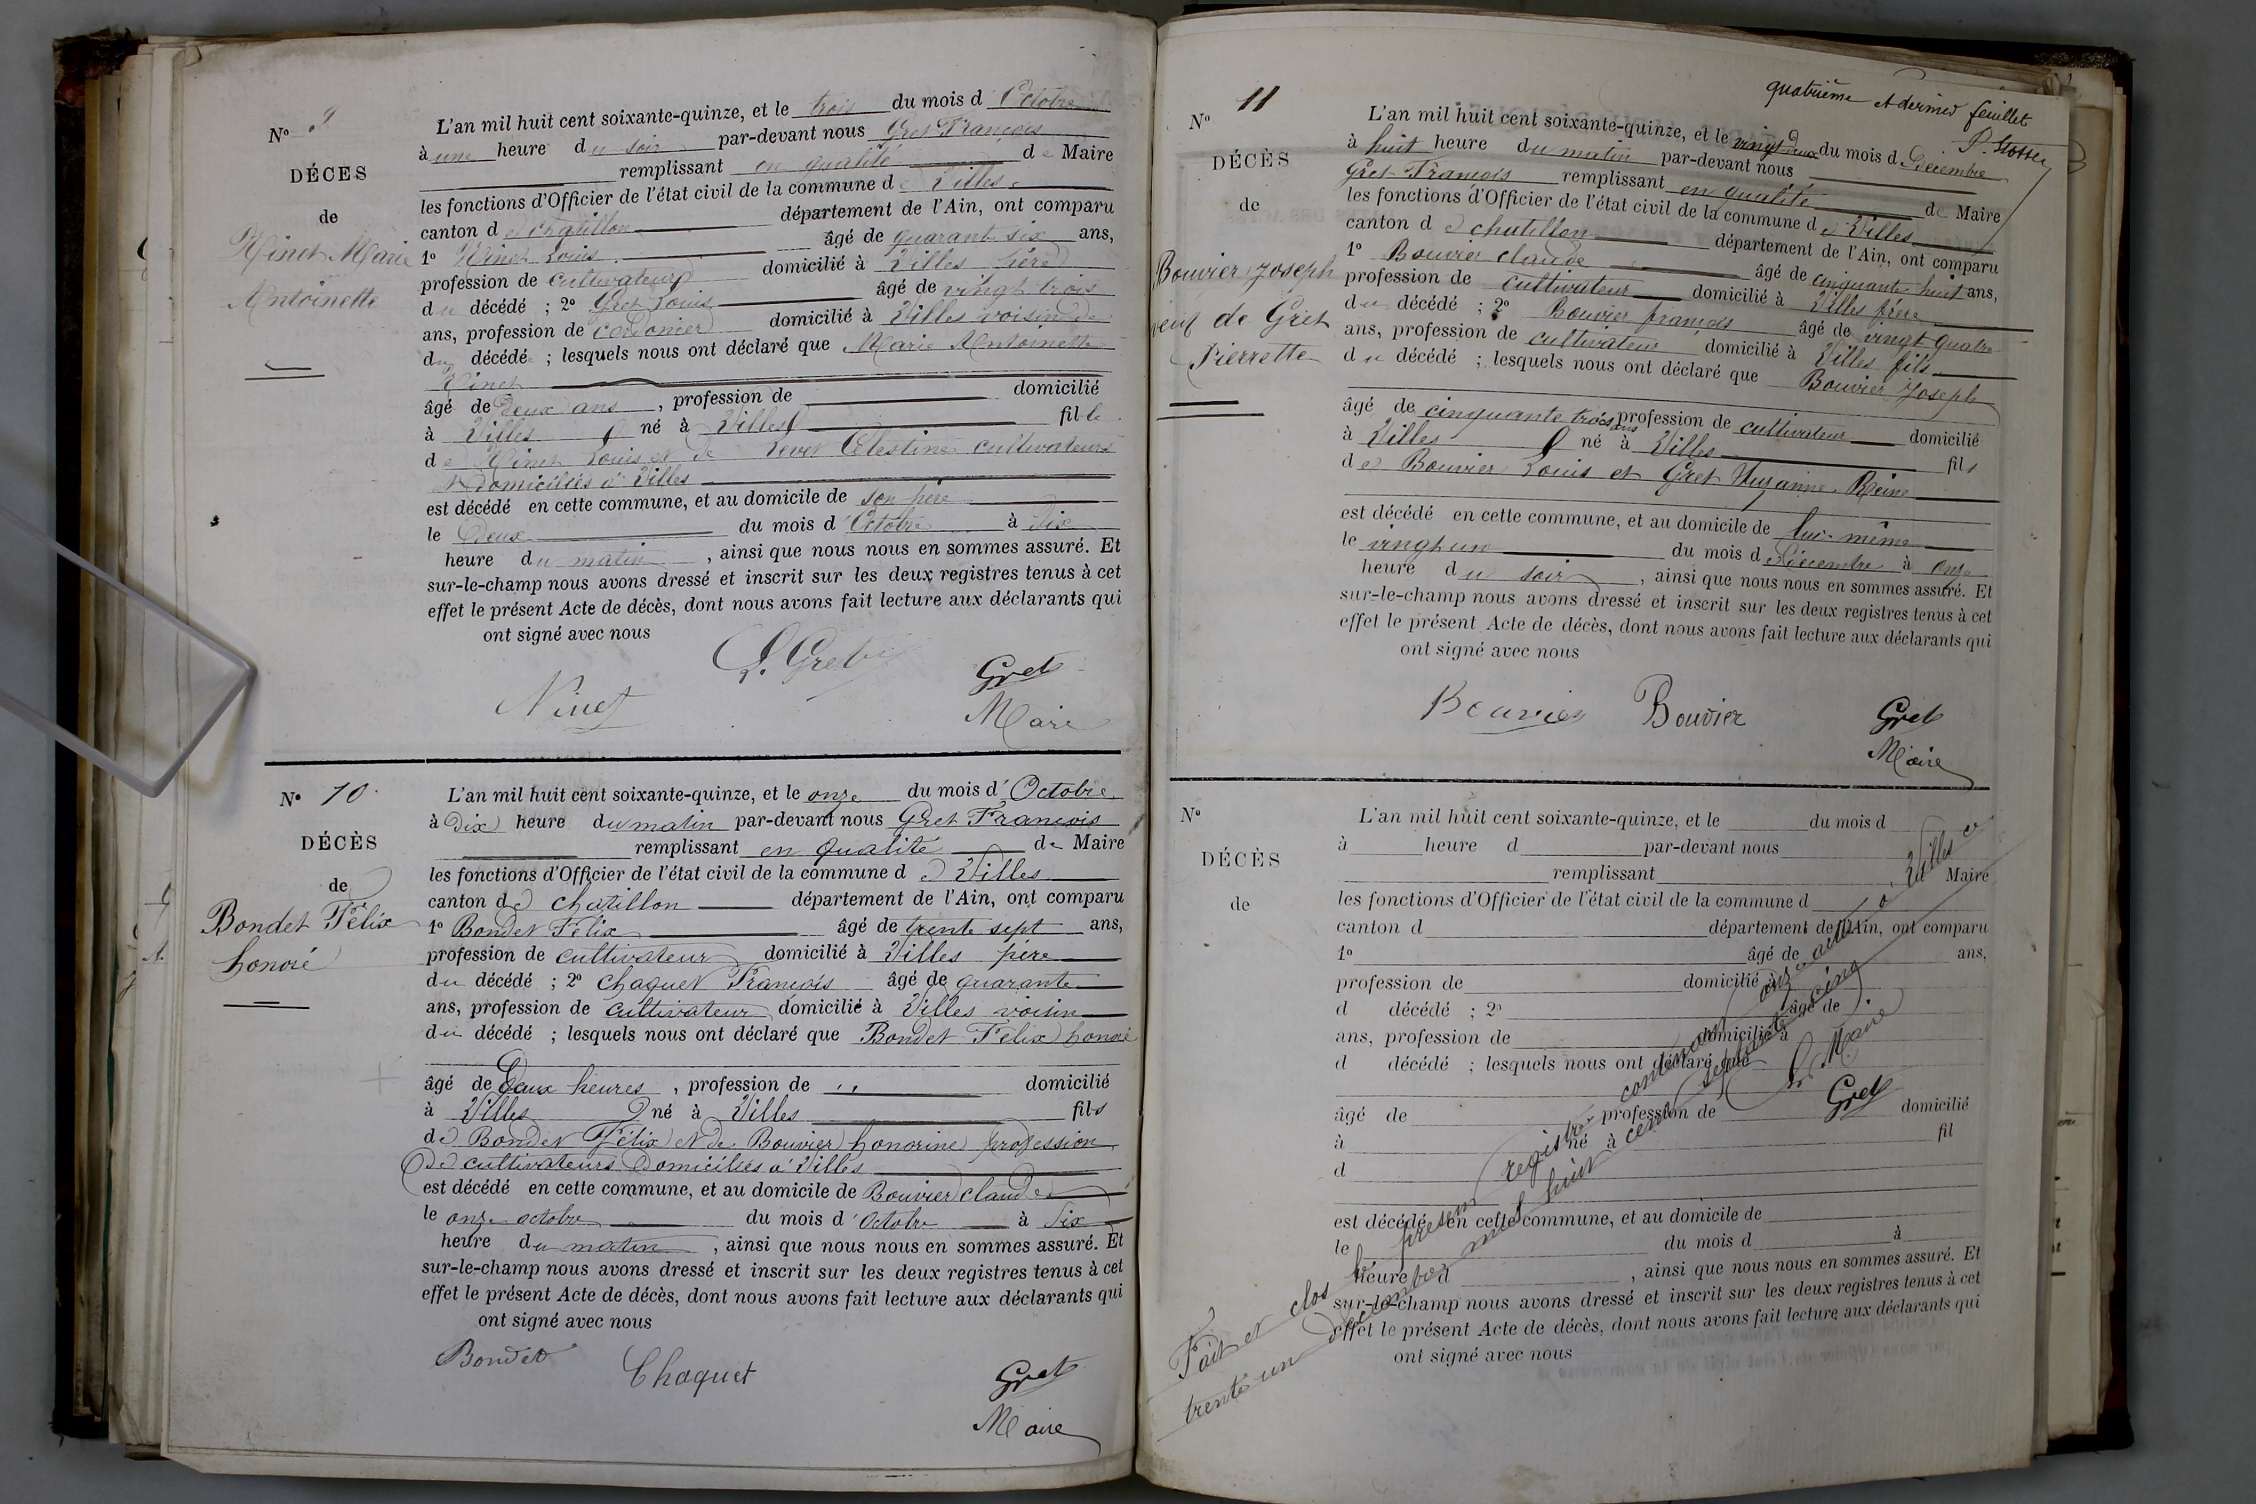 N° 9
DÉCES
de
Ninet Marie
Antoinette
L'an mil huit cent soixante-quinze, et le trois du mois d'Octobre
à une heure du soir par-devant nous Gret François
remplissant en qualité de Maire
les fonctions d'Officier de l'état civil de la commune de Villes
canton de chatillon département de l'Ain, ont comparu
1° Ninet Louis âgé de quarante six ans,
profession de cultivateur domicilié à Villes père
du décédé ; 2° Gret Louis âgé de vingt trois
ans, profession de cordonier domicilié à Villes voisin de
du décédé ; lesquels nous ont déclaré que Marie Antoinette
Ninet
âgé de Deux ans , profession de domicilié
à Villes né à Villes fille
de Ninet Louis et de Levet Célestine cultivateurs
et Domiciliés à Villes
est décédé en cette commune, et au domicile de son père
le Deux du mois d'Octobre à Dix
heure du matin , ainsi que nous nous en sommes assuré. Et
sur-le-champ nous avons dressé et inscrit sur les deux registres tenus à cet
effet le présent Acte de décès, dont nous avons fait lecture aux déclarants qui
ont signé avec nous
Ninet
Gret
Maire
N° 10
DÉCÈS
de
Bondet Félix
honoré
L'an mil huit cent soixante-quinze, et le onze du mois d'Octobre
à Dix heure du matin par-devant nous Gret François
remplissant en qualité de Maire
les fonctions d'Officier de l'état civil de la commune de Villes
canton de chatillon département de l'Ain, ont comparu
1° Bondet Félix âgé de trente sept ans,
profession de cultivateur domicilié à Villes père
du décédé ; 2° chaquet François âgé de quarante
ans, profession de cultivateur domicilié à Villes voisin
du décédé ; lesquels nous ont déclaré que Bondet Félix honoré
âgé de Deux heures , profession de ,, domicilié
à Villes né à Villes fils
de Bondet Félix et de Bouvier honorine profession
De cultivateurs Domiciliés à Villes
est décédé en cette commune, et au domicile de Bouvier claude
le onze octobre du mois d'Octobre à Six
heure du matin , ainsi que nous nous en sommes assuré. Et
sur-le-champ nous avons dressé et inscrit sur les deux registres tenus à cet
effet le présent Acte de décès, dont nous avons fait lecture aux déclarants qui
ont signé avec nous
Bondet Chaquet Gret
Maire
quatrième et dernier feuillet
N° 11
DÉCÈS
de
Bouvier Joseph
veuf de Gret
Pierrette
L'an mil huit cent soixante-quinze, et le vingt deux du mois de Décembre
à huit heure du matin par-devant nous
Gret François remplissant en qualité de Maire
les fonctions d'Officier de l'état civil de la commune de Villes
canton de chatillon département de l'Ain, ont comparu
1° Bouvier claude âgé de cinquante huit ans,
profession de cultivateur domicilié à Villes frère
du décédé ; 2° Bouvier françois âgé de vingt quatre
ans, profession de cultivateur domicilié à Villes fils
du décédé ; lesquels nous ont déclaré que Bouvier Joseph
âgé de cinquante trois ans profession de cultivateur domicilié
à Villes né à Villes fils
de Bouvier Louis et Gret Suzanne Reine
est décédé en cette commune, et au domicile de lui-même
le vingt un du mois de Décembre à onze
heure du soir , ainsi que nous nous en sommes assuré. Et
sur-le-champ nous avons dressé et inscrit sur les deux registres tenus à cet
effet le présent Acte de décès, dont nous avons fait lecture aux déclarants qui
ont signé avec nous
Bouvier Bouvier Gret
Maire
N°
DÉCÈS
de
L'an mil huit cent soixante-quinze, et le du mois d
à heure d par-devant nous
remplissant d Maire
les fonctions d'Officier de l'état civil de la commune d
canton d département de l'Ain, ont comparu
1° âgé de ans,
profession de domicilié à
d décédé ; 2° âgé de
ans, profession de domicilié à
d décédé ; lesquels nous ont déclaré que
âgé de profession de domicilié
à né à fil
d
est décédé en cette commune, et au domicile de
le du mois d à
heure d , ainsi que nous nous en sommes assuré. Et
sur-le-champ nous avons dressé et inscrit sur les deux registres tenus à cet
effet le présent Acte de décès, dont nous avons fait lecture aux déclarants qui
ont signé avec nous
Fait et clos le présent registre contenant onze actes à Villes le
trente un décembre mil huit cent septante cinq
Le Maire
Gret